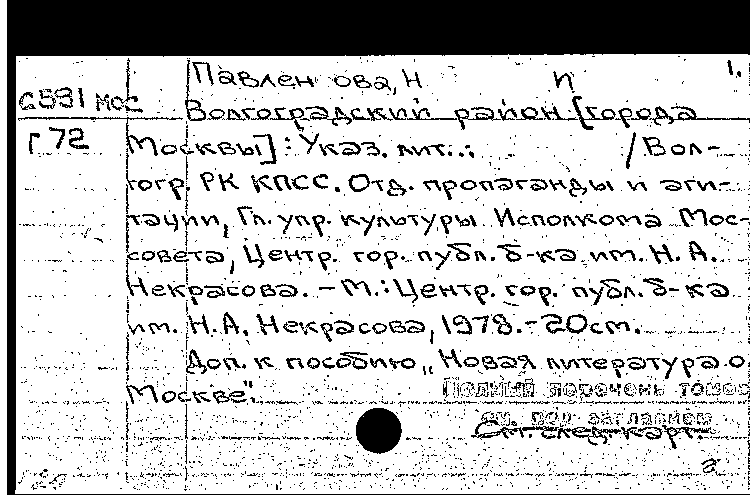 Павлен ова, Н и 1.
G591 МОС Волгоградский район [города
Г72 Москвы] : Указ. лит..: / Вол-
гогр. РК КПСС. Отд. пропаганды и аги-
тации, Гл. упр. культуры Исполкома Мос-
совета, Центр. гор. публ. б-ка им. Н. А.
Некрасова. – М.: Центр. гор. публ. б-ка
им. Н.А. Некрасова, 1978. – 20см.
Доп. к пособию „Новая литература о
Москве".
Полный перечень томов
см. под заглавием
См. след. карт.